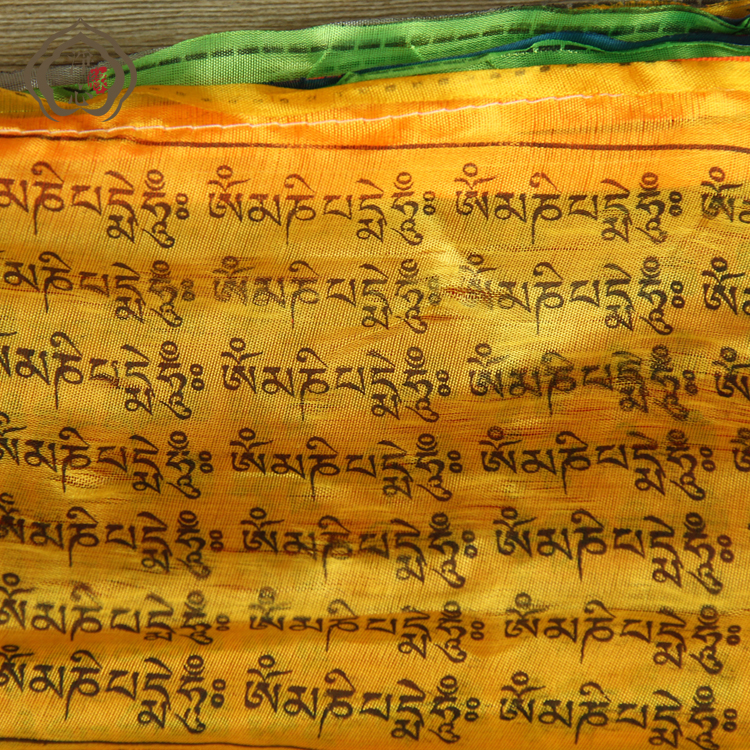 མཎིཔདྨེཧཱུྃཿ ཨོཾམཎིཔདྨེཧཱུྃཿ ཨོཾམཎིཔདྨེཧཱུྃཿ ཨོཾ
མཎིཔདྨེཧཱུྃཿ ཨོཾམཎིཔདྨེཧཱུྃཿ ཨོཾམཎིཔདྨེཧཱུྃཿ ཨོཾ
མཎིཔདྨེཧཱུྃཿ ཨོཾམཎིཔདྨེཧཱུྃཿ ཨོཾམཎིཔདྨེཧཱུྃཿ ཨོཾ
ཨོཾམཎིཔདྨེཧཱུྃཿ ཨོཾམཎིཔདྨེཧཱུྃཿ ཨོཾམཎིཔདྨེཧཱུྃཿ
ཨོཾམཎིཔདྨེཧཱུྃཿ ཨོཾམཎིཔདྨེཧཱུྃཿ ཨོཾམཎིཔདྨེཧཱུྃཿ
ཨོཾམཎིཔདྨེཧཱུྃཿ ཨོཾམཎིཔདྨེཧཱུྃཿ ཨོཾམཎིཔདྨེཧཱུྃཿ
ཨོཾམཎིཔདྨེཧཱུྃཿ ཨོཾམཎིཔདྨེཧཱུྃཿ ཨོཾམཎིཔདྨེཧཱུྃཿ